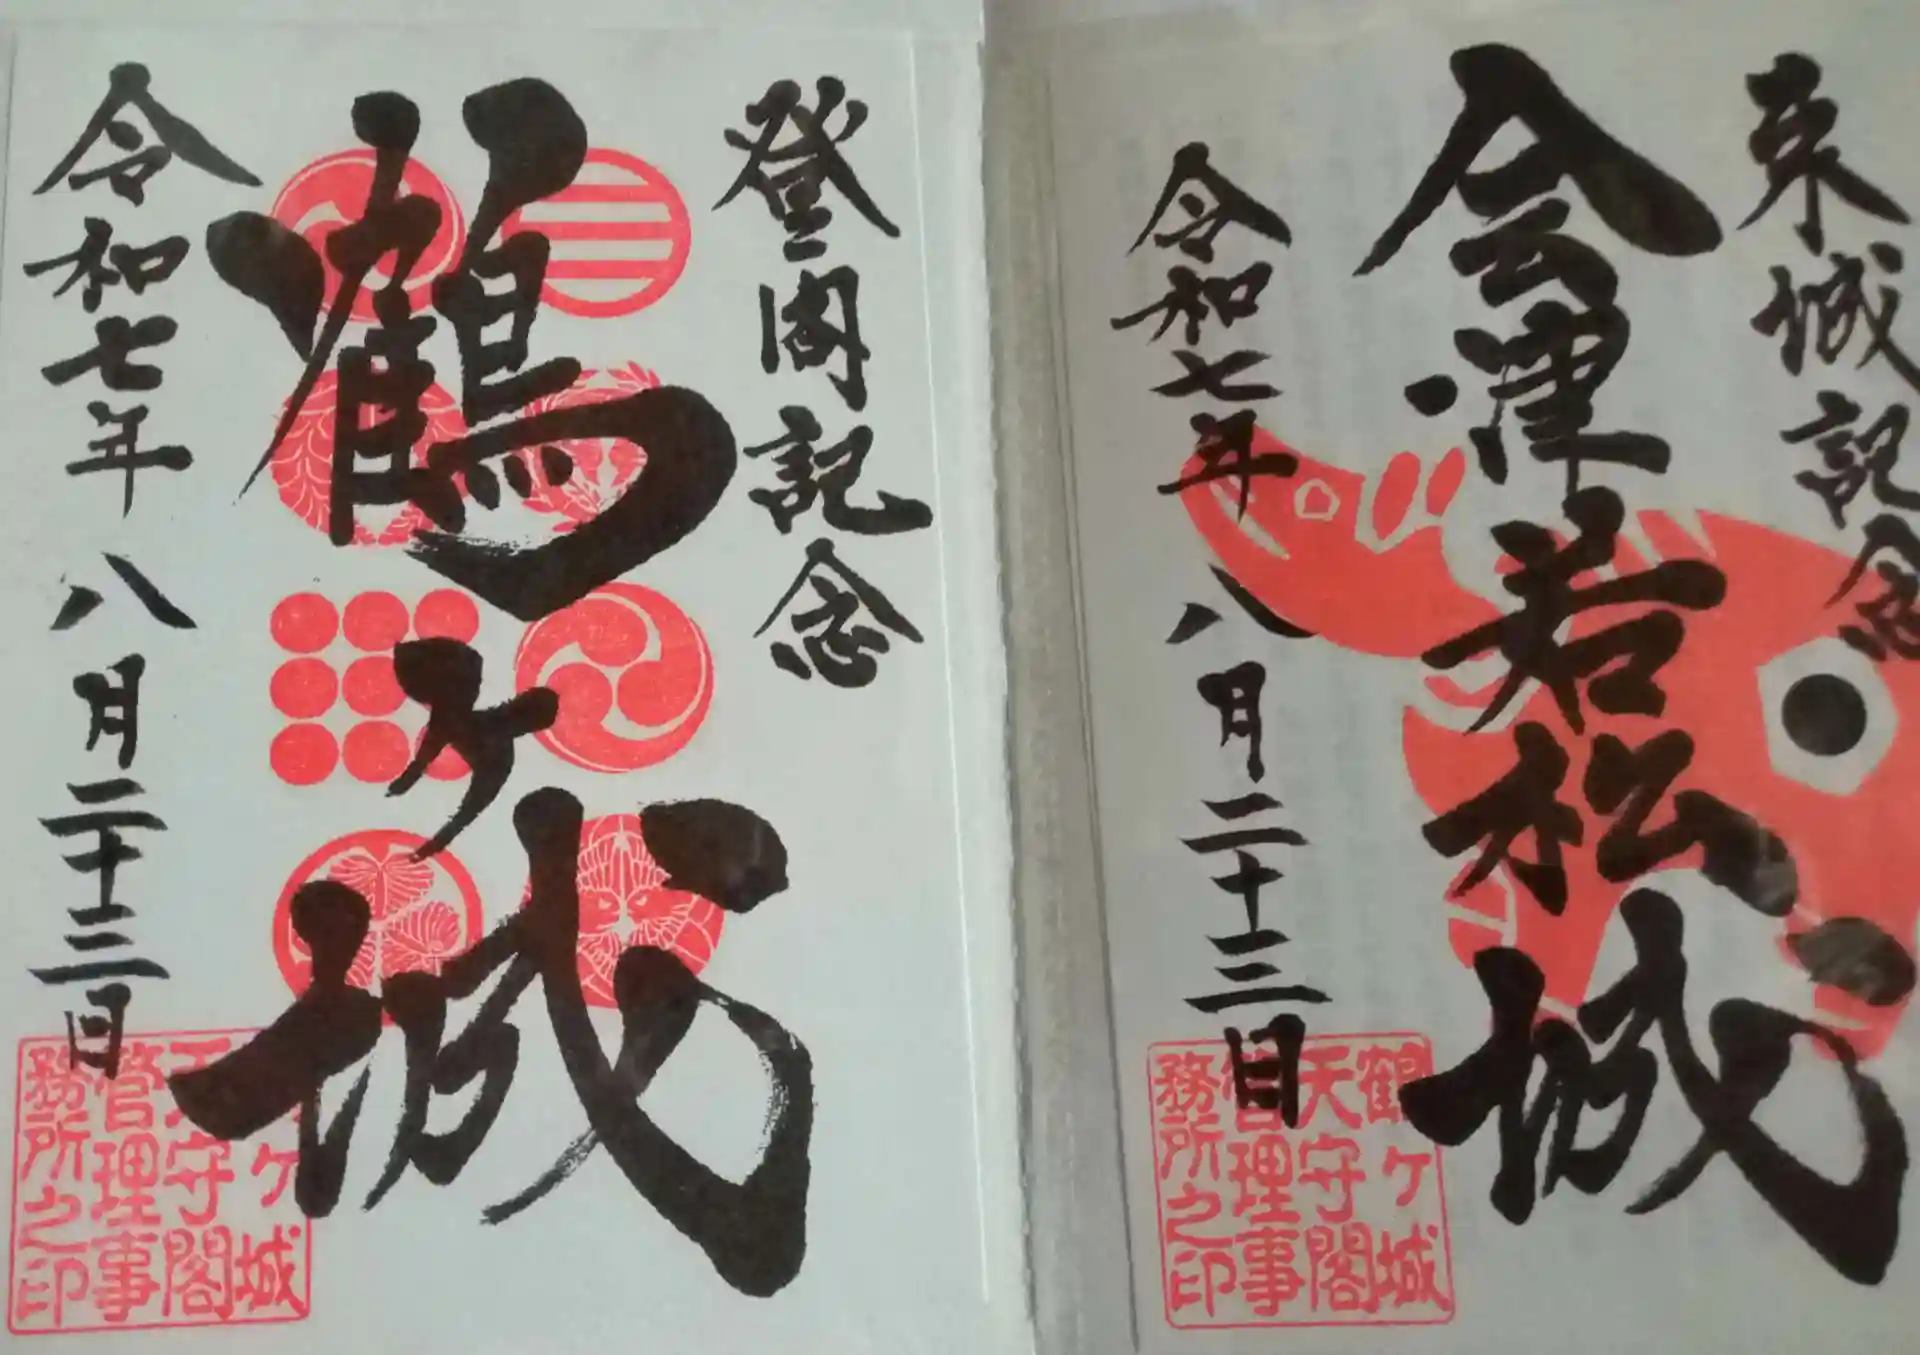 来城記念
会津若松城
令和七年 八月二十三日
鶴ヶ城
天守閣
管理事
務所之印
登閣記念
鶴ヶ城
令和七年 八月二十三日
ヶ城
天守閣
管理事
務所之印